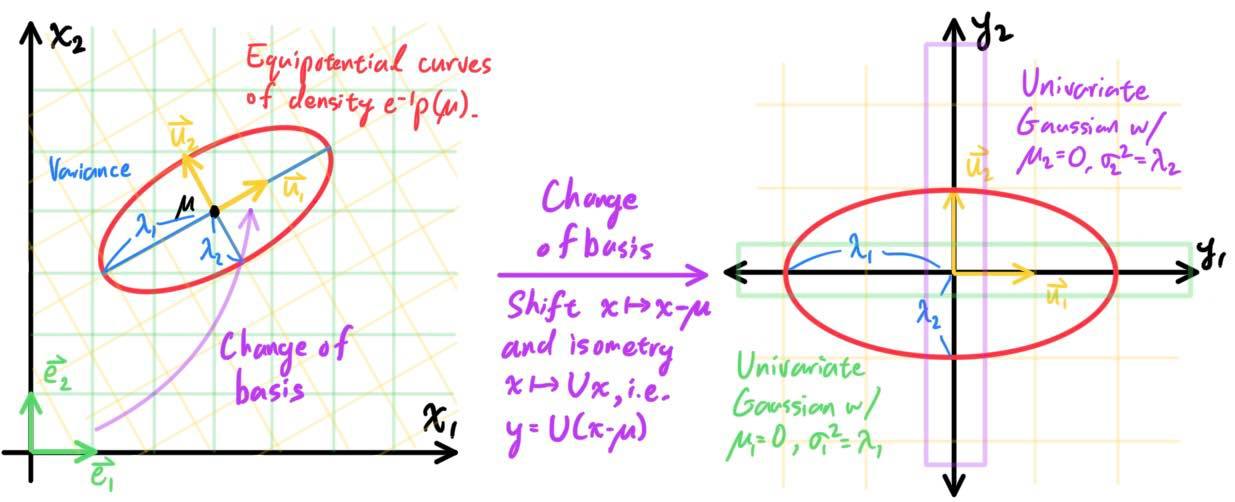 x₂
Equipotential curves
of density e⁻¹p(μ).
u⃗₂
Variance
u⃗₁
μ
λ₁
λ₂
Change of
basis
e⃗₂
x₁
e⃗₁
Change
of basis
Shift x↦x-μ
and isometry
x↦Ux, i.e.
y=U(x-μ)
y₂
Univariate
Gaussian w/
μ₂=0, σ₂²=λ₂
u⃗₂
y₁
λ₁
u⃗₁
λ₂
Univariate
Gaussian w/
μ₁=0, σ₁²=λ₁